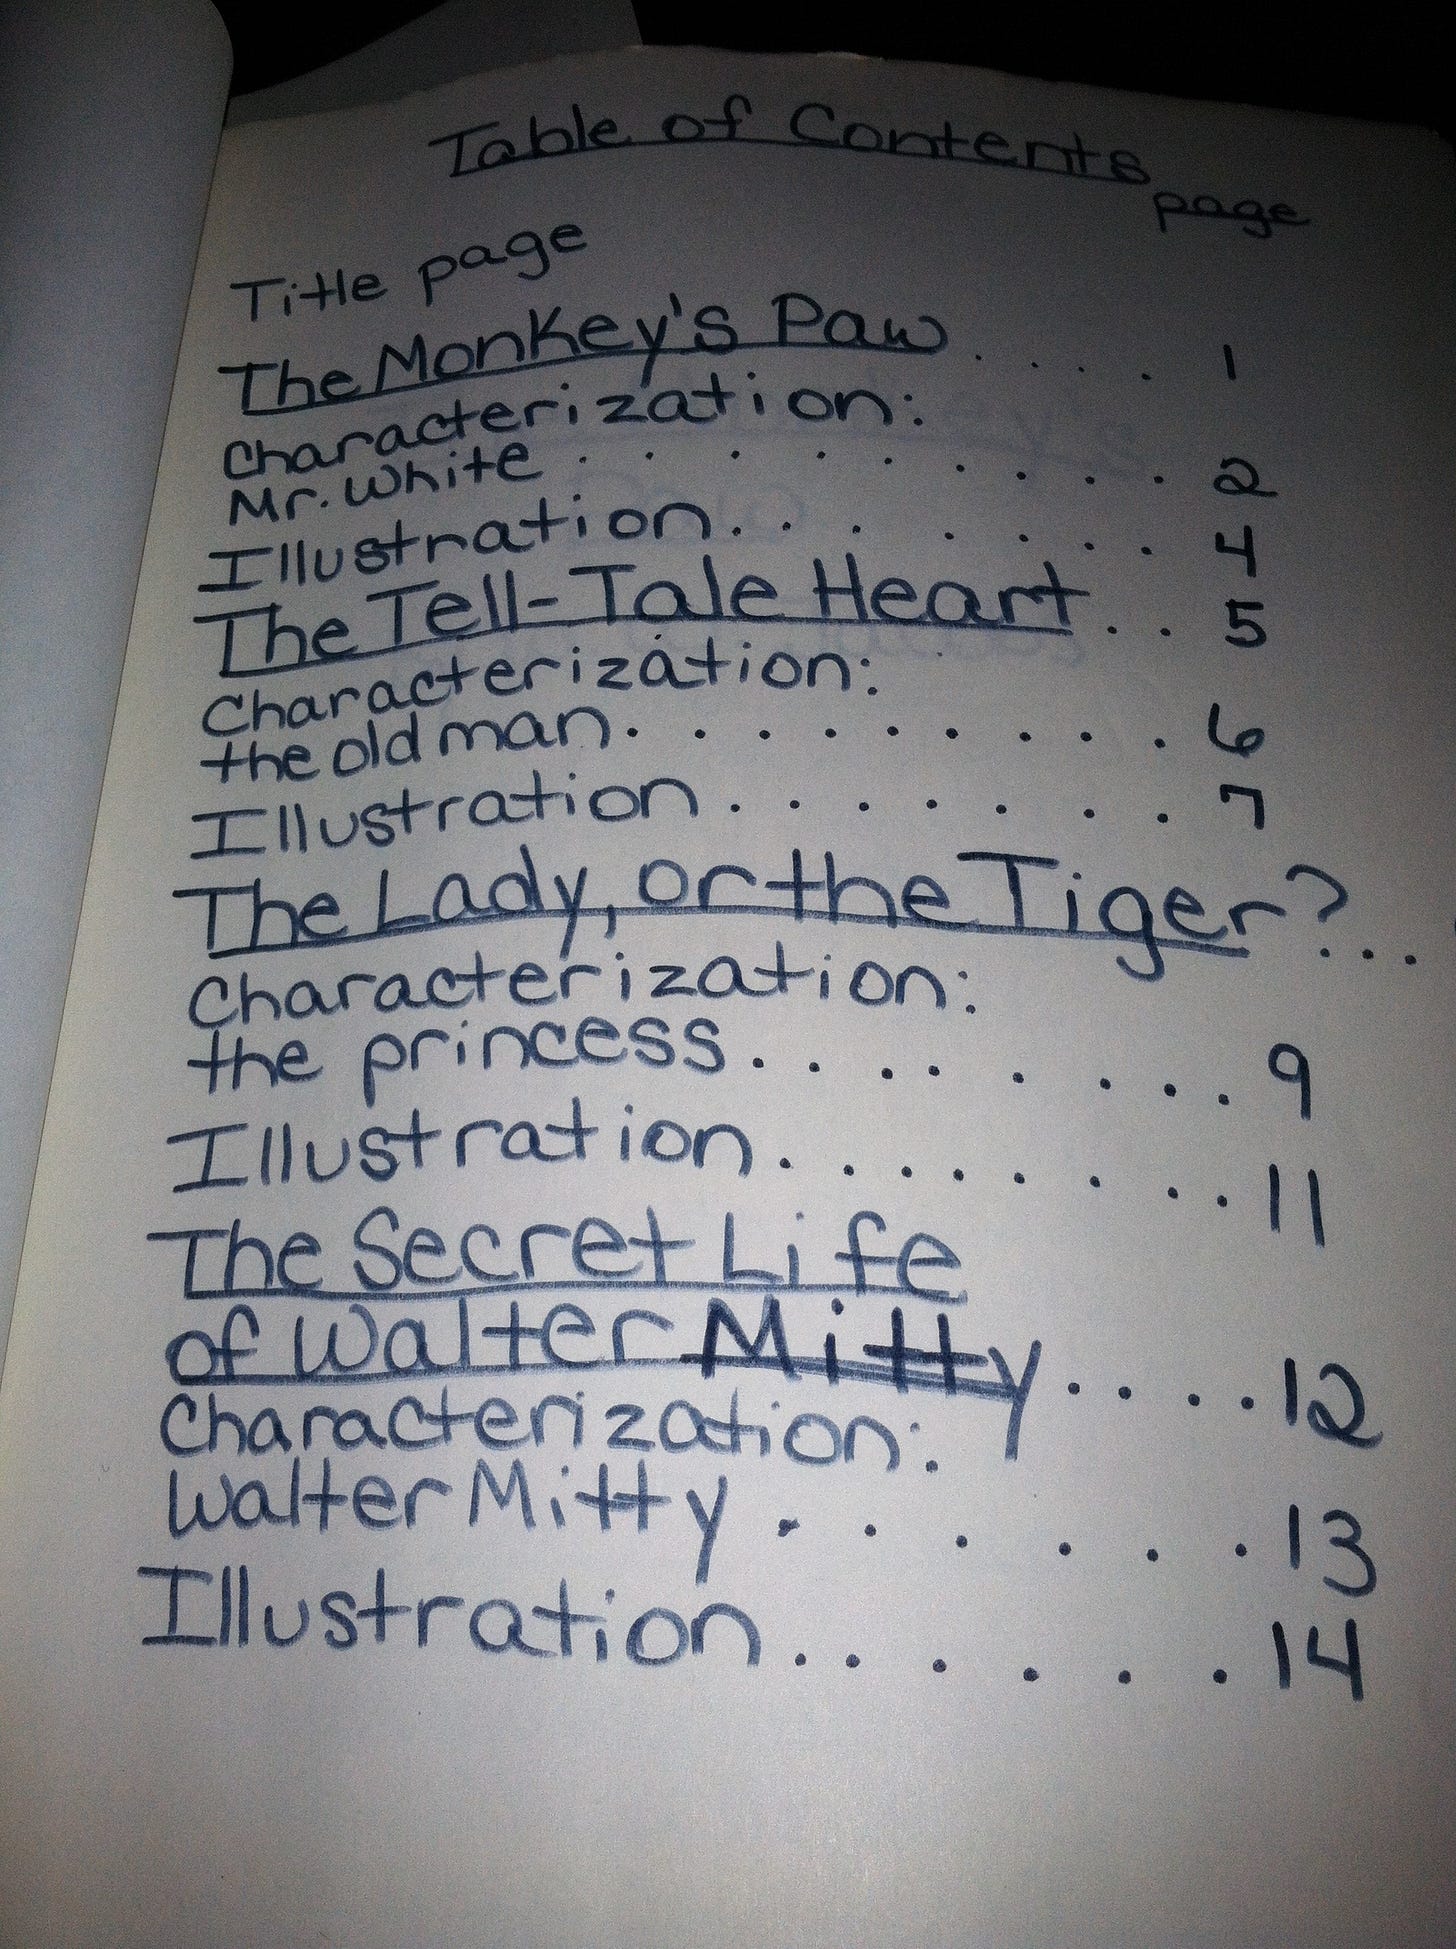 Table of Contents
page
Title page
The Monkey's Paw . . . . 1
Characterization:
Mr. White . . . . . . . . . 2
Illustration . . . . . . . 4
The Tell-Tale Heart . . 5
Characterization:
the old man . . . . . . . . . 6
Illustration . . . . . . . 7
The Lady, or the Tiger? . . .
Characterization:
the princess . . . . . . . . 9
Illustration . . . . . . . . 11
The Secret Life
of Walter Mitty . . . . 12
Characterization:
Walter Mitty . . . . . . 13
Illustration . . . . . . 14